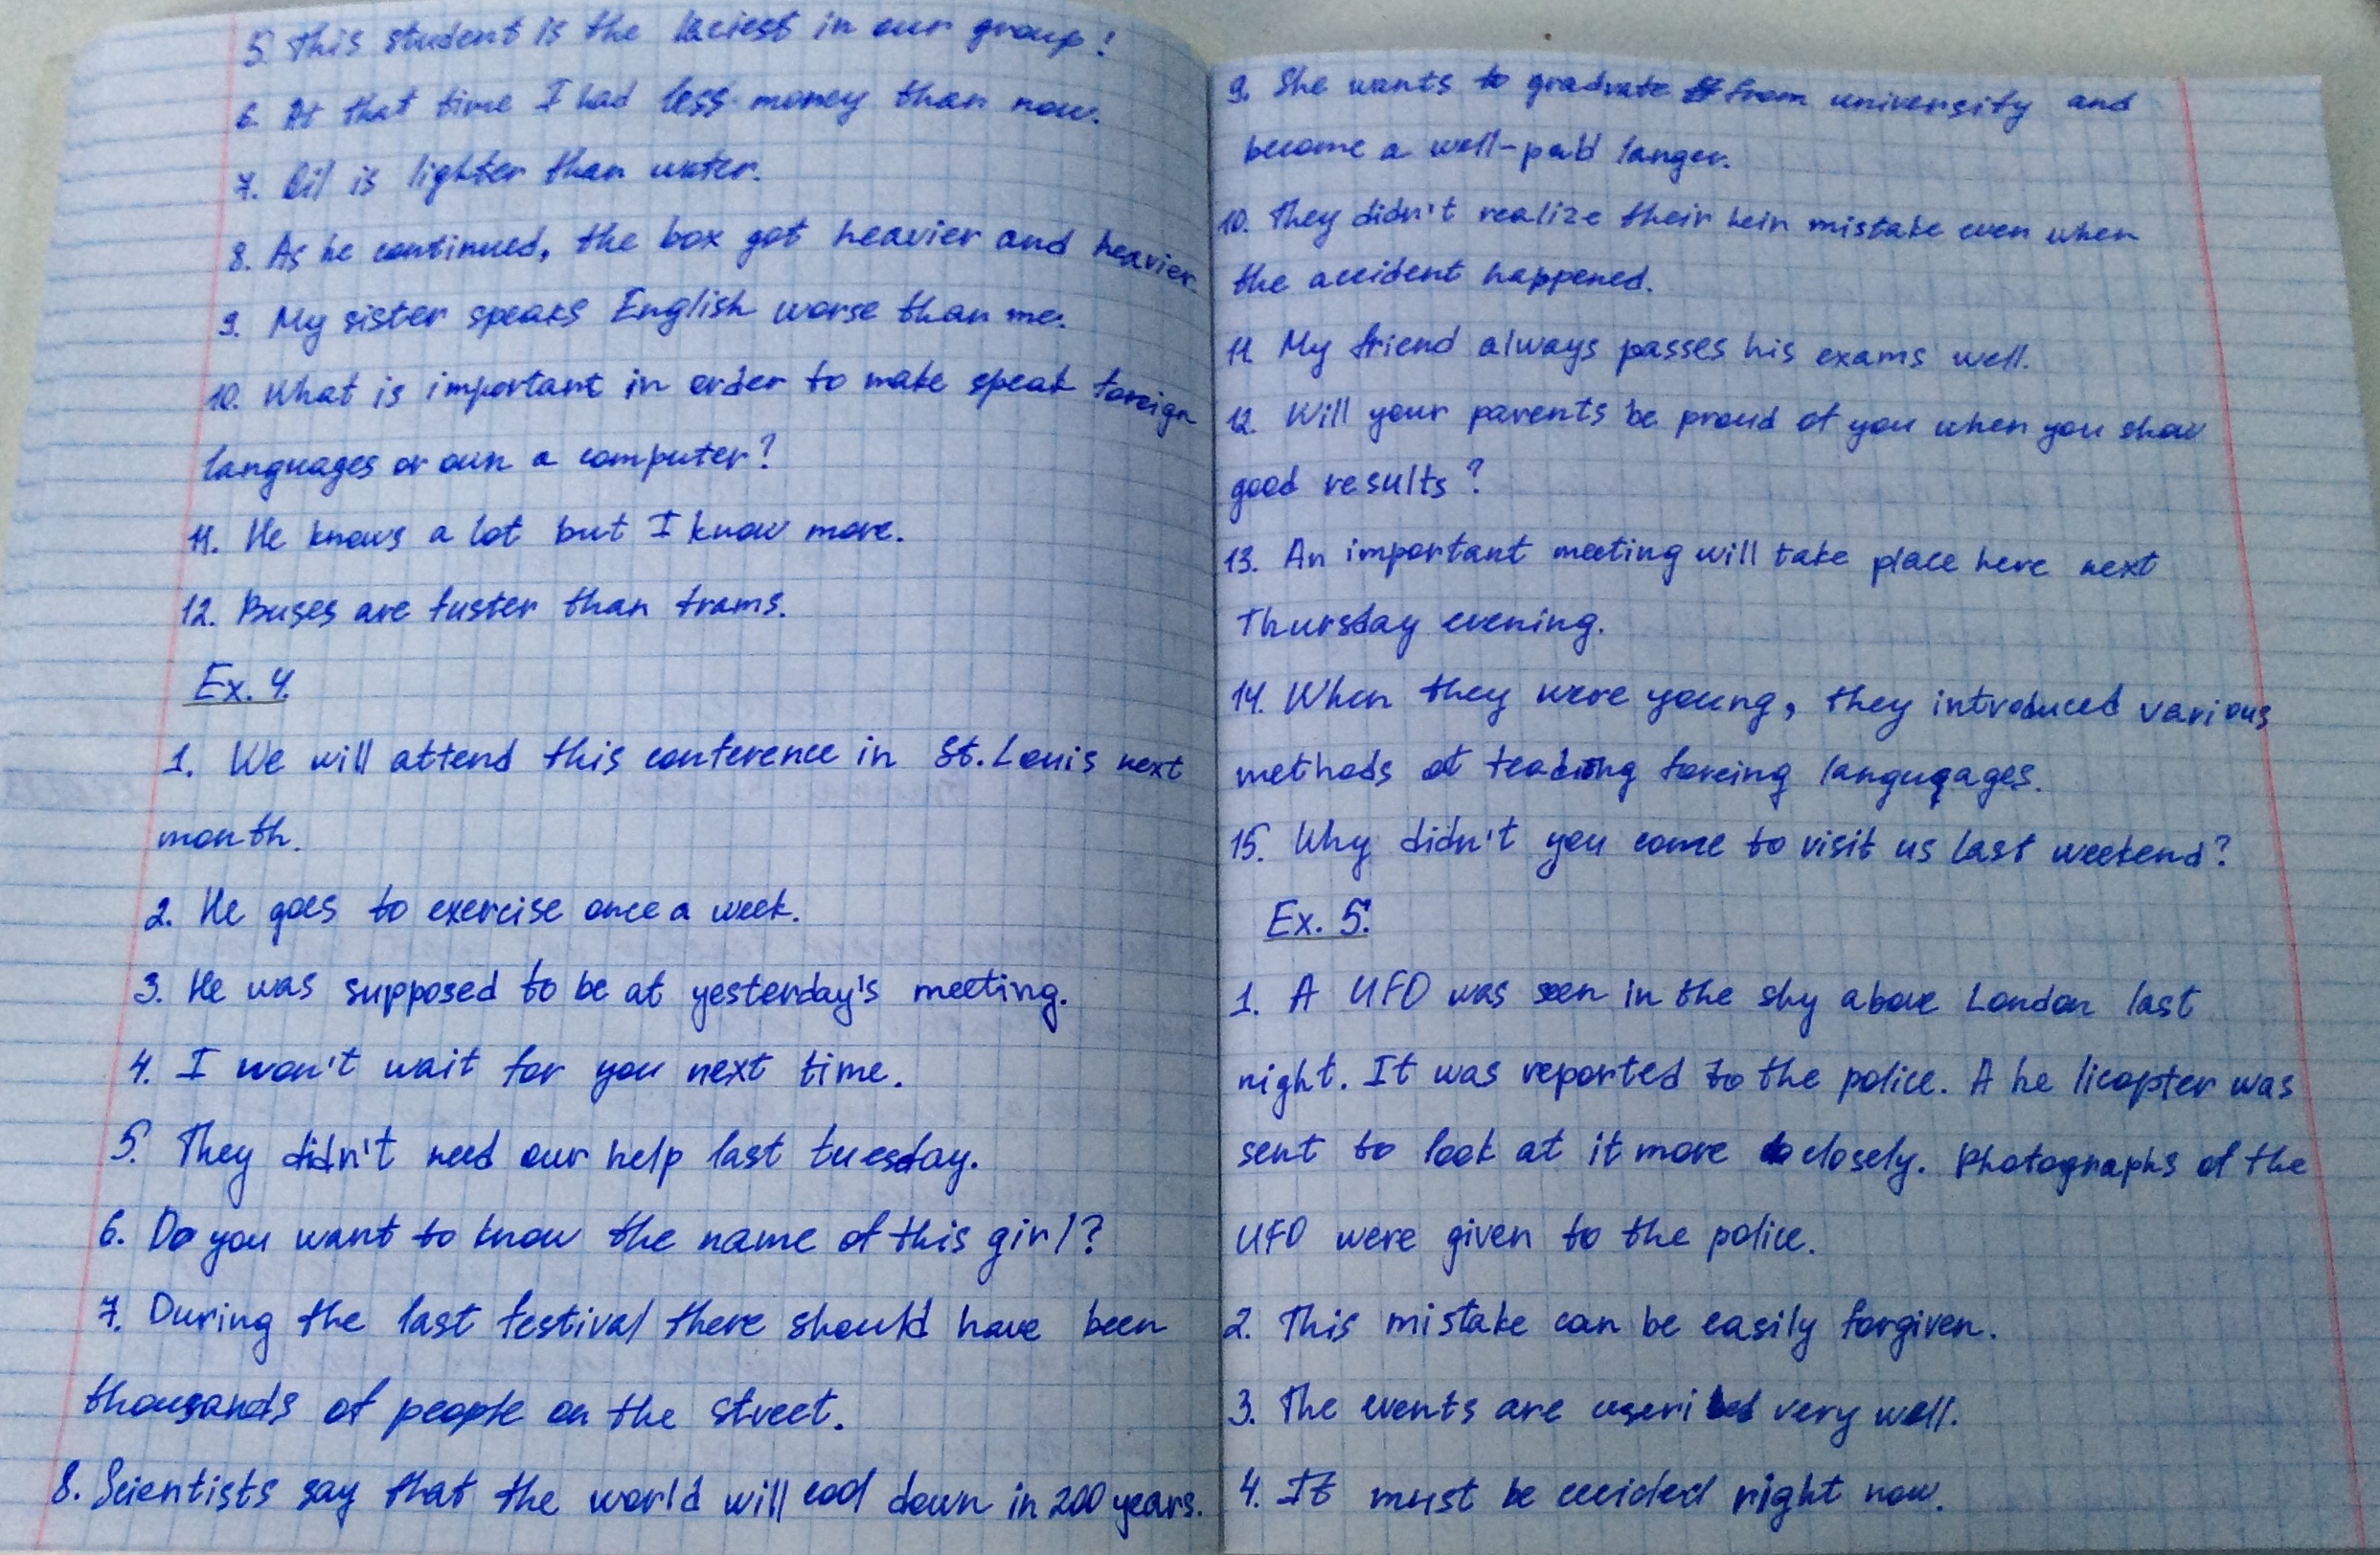 5. This student is the laciest in our group!
6. At that time I had less money than now.
7. Oil is lighter than water.
8. As he continued, the box got heavier and heavier.
9. My sister speaks English worse than me.
10. What is important in order to make speak foreign
languages or own a computer?
11. He knows a lot but I know more.
12. Buses are fuster than trams.
Ex. 4.
1. We will attend this conference in St. Louis next
month.
2. He goes to exercise once a week.
3. He was supposed to be at yesterday's meeting.
4. I won't wait for you next time.
5. They didn't need our help last tuesday.
6. Do you want to know the name of this girl?
7. During the last festival there should have been
thousands of people on the street.
8. Scientists say that the world will cool down in 200 years.
9. She wants to graduate from university and
become a well-paid langer.
10. They didn't realize their hein mistake even when
the accident happened.
11. My friend always passes his exams well.
12. Will your parents be proud of you when you show
good results?
13. An important meeting will take place here next
Thursday evening.
14. When they were young, they introduced various
methods of foreing languqages.
15. Why didn't you come to visit us last weekend?
Ex. 5.
1. A UFO was seen in the sky above London last
night. It was reported to the police. A helicopter was
sent to look at it more closely. Photographs of the
UFO were given to the police.
2. This mistake can be easily forgiven.
3. The events are very well.
4. It must be right now.